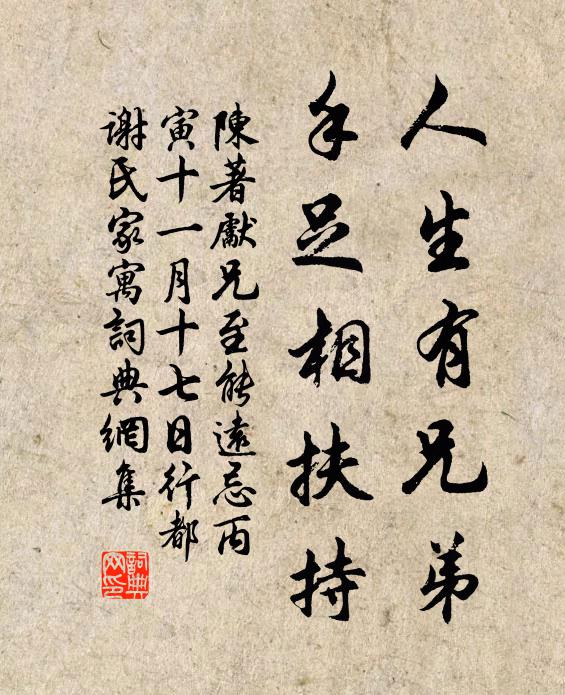 人生有兄弟
手足相扶持
陳著獻兄至能遠忌丙
寅十一月十七日行都
謝氏家寓詞典網集
詞典網印